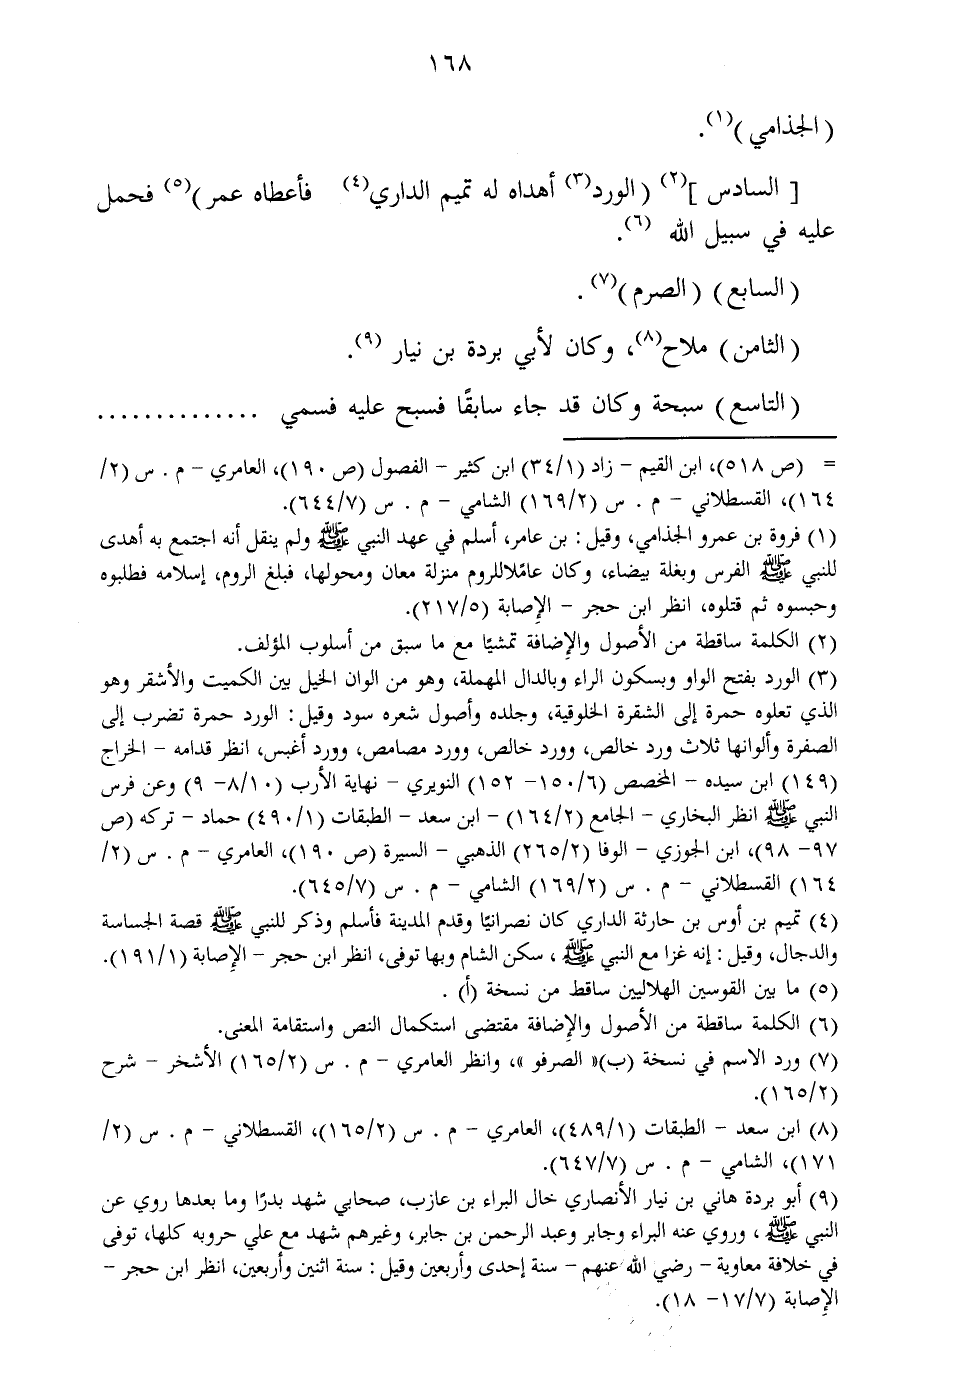 ١٦٨
(الجذامي)(١).
[ السادس ](٢) (الورد(٣) أهداه له تميم الداري(٤) فأعطاه عمر)(٥) فحمل
عليه في سبيل الله (٦).
(السابع) (الصرم)(٧) .
(الثامن) ملاح(٨)، وكان لأبي بردة بن نيار (٩).
(التاسع) سبحة وكان قد جاء سابقًا فسبح عليه فسمي ..............
= (ص ٥١٨)، ابن القيم – زاد (٣٤/١) ابن كثير – الفصول (ص ١٩٠)، العامري – م . س (٢/
١٦٤)، القسطلاني – م . س (١٦٩/٢) الشامي – م . س (٦٤٤/٧).
(١) فروة بن عمرو الجذامي، وقيل : بن عامر، أسلم في عهد النبي ﷺ ولم ينقل أنه اجتمع به أهدى
للنبي ﷺ الفرس وبغلة بيضاء، وكان عاملاللروم منزلة معان ومحولها، فبلغ الروم، إسلامه فطلبوه
وحبسوه ثم قتلوه، انظر ابن حجر – الإصابة (٢١٧/٥).
(٢) الكلمة ساقطة من الأصول والإضافة تمشيًا مع ما سبق من أسلوب المؤلف.
(٣) الورد بفتح الواو وبسكون الراء وبالدال المهملة، وهو من الوان الخيل بين الكميت والأشقر وهو
الذي تعلوه حمرة إلى الشقرة الخلوقية، وجلده وأصول شعره سود وقيل : الورد حمرة تضرب إلى
الصفرة وألوانها ثلاث ورد خالص، وورد خالص، وورد مصامص، وورد أغبس، انظر قدامه – الخراج
(١٤٩) ابن سيده – المخصص (١٥٠/٦– ١٥٢) النويري – نهاية الأرب (٨/١٠– ٩) وعن فرس
النبي ﷺ انظر البخاري – الجامع (١٦٤/٢) – ابن سعد – الطبقات (٤٩٠/١) حماد – تركه (ص
٩٧– ٩٨)، ابن الجوزي – الوفا (٢٦٥/٢) الذهبي – السيرة (ص ١٩٠)، العامري – م . س (٢/
١٦٤) القسطلاني – م . س (١٦٩/٢) الشامي – م . س (٦٤٥/٧).
(٤) تميم بن أوس بن حارثة الداري كان نصرانيًا وقدم المدينة فأسلم وذكر للنبي ﷺ قصة الجساسة
والدجال، وقيل : إنه غزا مع النبي ﷺ ، سكن الشام وبها توفى، انظر ابن حجر – الإصابة (١٩١/١).
(٥) ما بين القوسين الهلاليين ساقط من نسخة (أ) .
(٦) الكلمة ساقطة من الأصول والإضافة مقتضى استكمال النص واستقامة المعنى.
(٧) ورد الاسم في نسخة (ب)« الصرفو »، وانظر العامري – م . س (١٦٥/٢) الأشخر – شرح
(١٦٥/٢).
(٨) ابن سعد – الطبقات (٤٨٩/١)، العامري – م . س (١٦٥/٢)، القسطلاني – م . س (٢/
١٧١)، الشامي – م . س (٦٤٧/٧).
(٩) أبو بردة هاني بن نيار الأنصاري خال البراء بن عازب، صحابي شهد بدرًا وما بعدها روي عن
النبي ﷺ ، وروي عنه البراء وجابر وعبد الرحمن بن جابر، وغيرهم شهد مع علي حروبه كلها، توفى
في خلافة معاوية – رضي الله عنهم – سنة إحدى وأربعين وقيل : سنة اثنين وأربعين، انظر ابن حجر –
الإصابة (١٧/٧– ١٨).